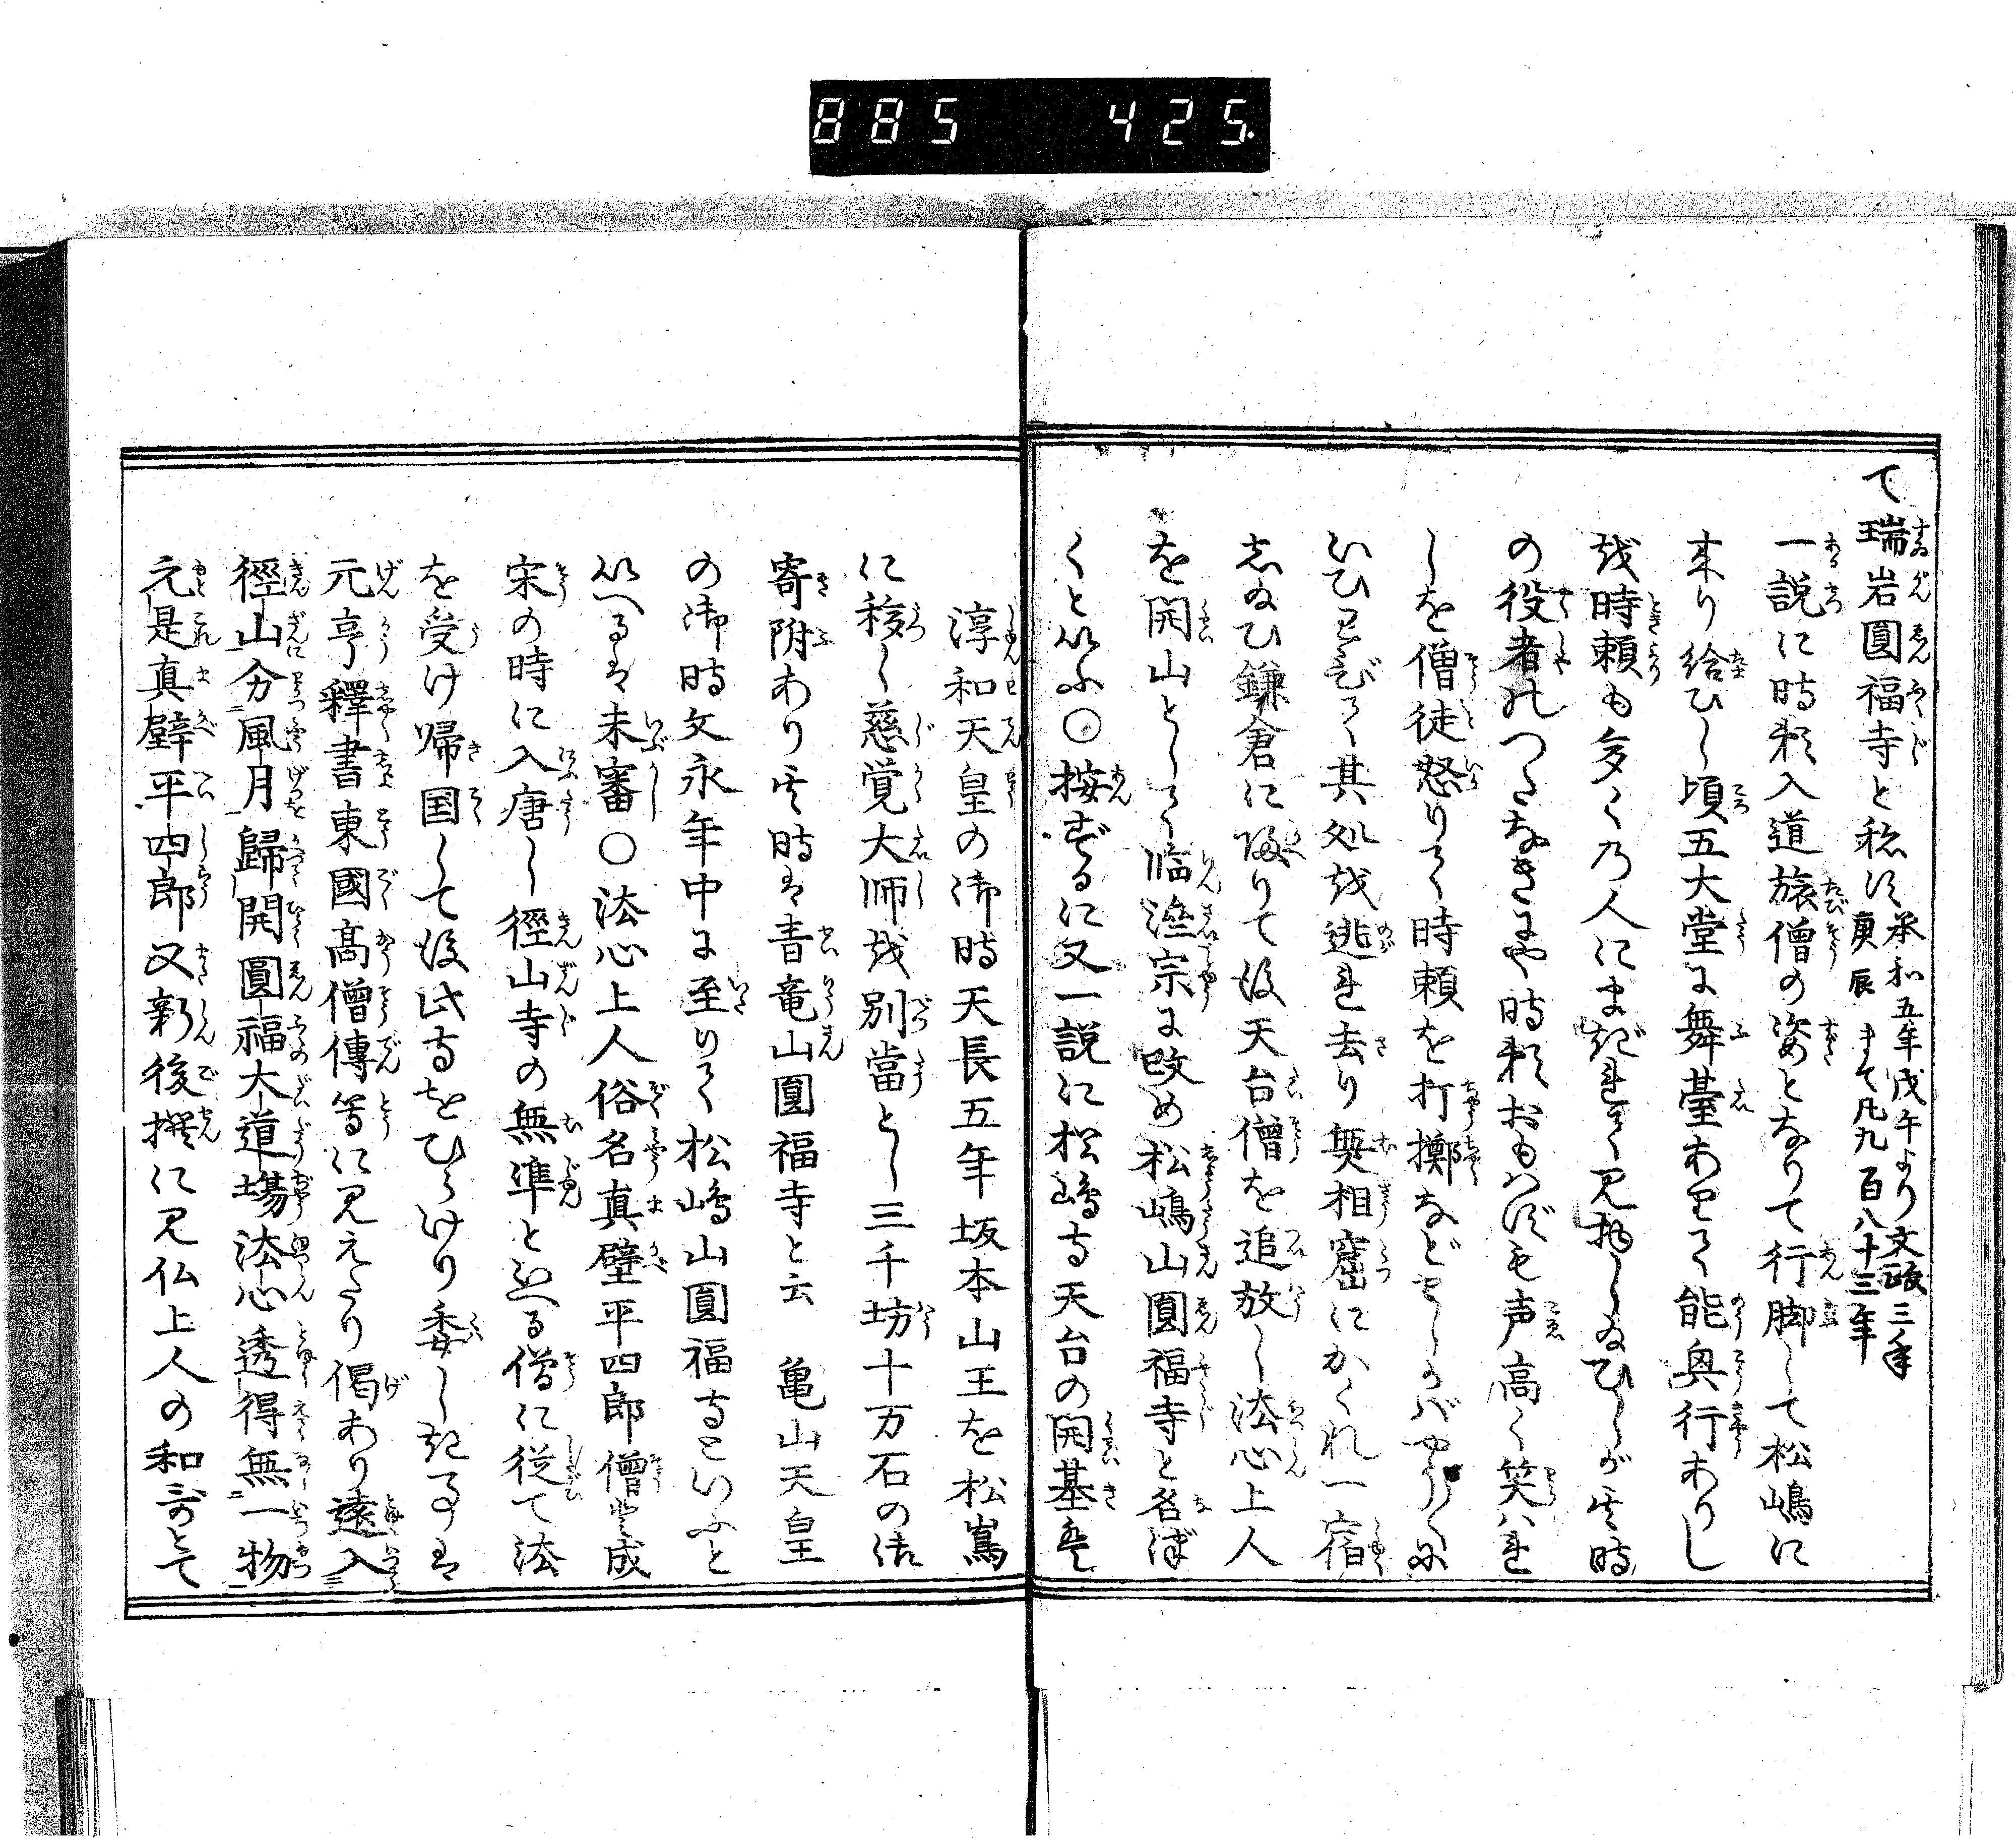 885 425.
て瑞岩圓福寺と称す 承和五年戊午より文政三年庚辰まて凡九百八十三年
一説に時頼入道旅僧の姿となりて行脚して松嶋に
来り給ひし頃五大堂に舞臺ありて能興行ありし
を時頼も多くの人にまぎれて見物しゐひしが其時
の役者のつたなきにや時頼おもはずも声高く笑はれ
しを僧徒怒りて時頼を打擲などせしかばやう〳〵に
いひわびて其処を逃れ去り無相窟にかくれ一宿
しゐひ鎌倉に帰りて後天台僧を追放し法心上人
を開山として臨濟宗に改め松嶋山圓福寺と名づ
くといふ○按ずるに又一説に松嶋寺天台の開基は
淳和天皇の御時天長五年坂本山王を松嶌
に移し慈覚大師を別當とし三千坊十万石の御
寄附あり其時は青竜山圓福寺と云 亀山天皇
の御時文永年中に至りて松嶋山圓福寺といふと
いへるは未審○法心上人俗名真壁平四郎僧と成
宋の時に入唐し徑山寺の無準といへる僧に従て法
を受け帰国して後此寺をひらけり委しきことは
元亨釋書東國高僧傳等に見えたり偈あり遠入
徑山分風月歸開圓福大道場法心透得無一物
元是真壁平四郎又新後撰に見仏上人の和歌とて